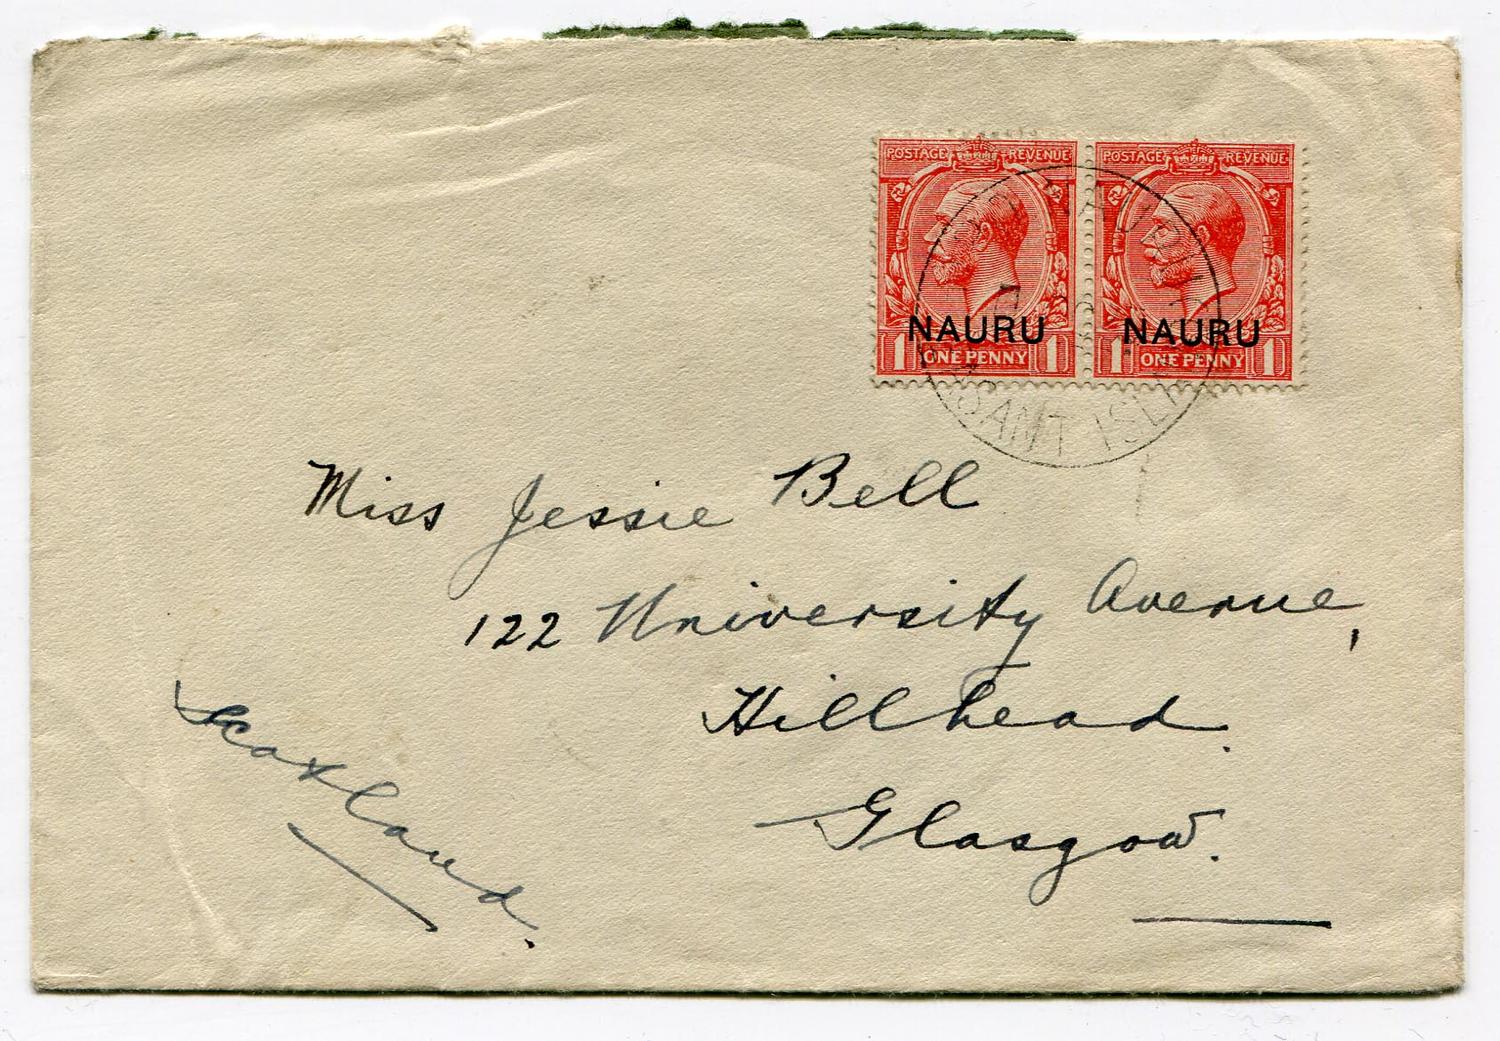 POSTAGE REVENUE
NAURU
1 ONE PENNY 1
POSTAGE REVENUE
NAURU
1 ONE PENNY 1
NAURU
Miss Jessie Bell
122 University Avenue,
Hillhead.
Glasgow.
Scotland.